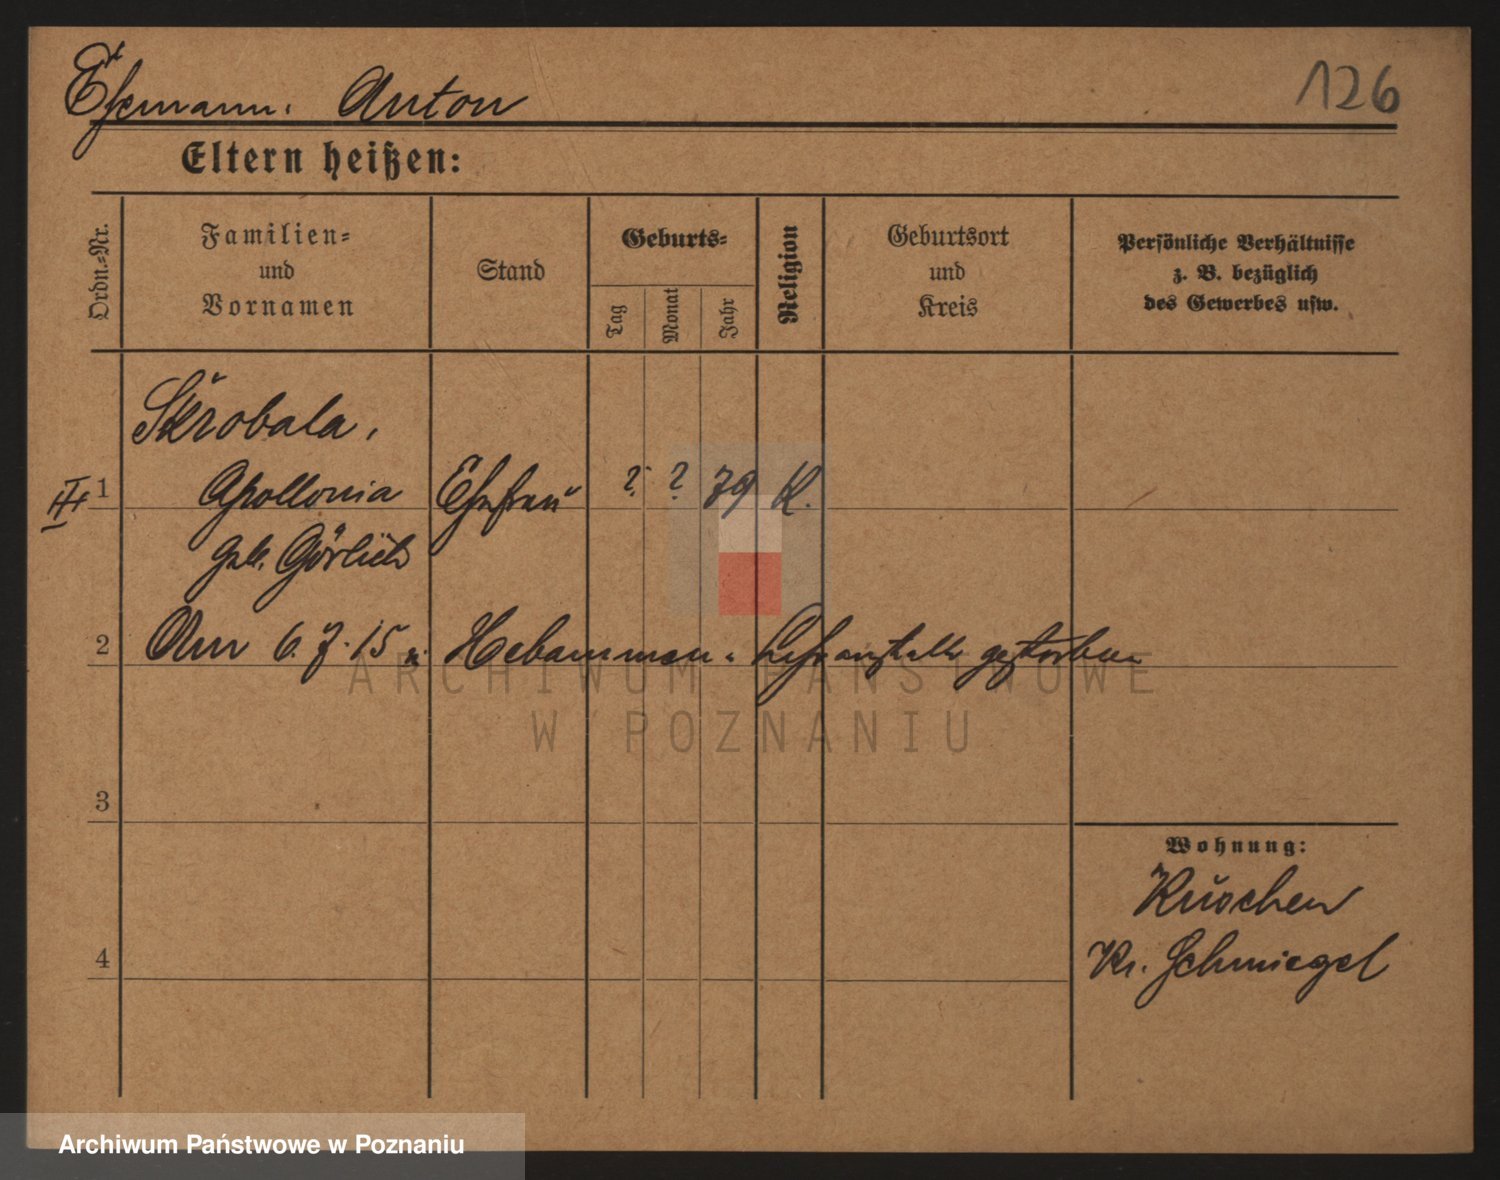 Ehemann: Anton
126
Eltern heißen:
Ordn.-Nr.
Familien-
und
Vornamen
Stand
Geburts-
Tag
Monat
Jahr
Religion
Geburtsort
und
Kreis
Persönliche Verhältnisse
z. B. bezüglich
des Gewerbes usw.
Skrobala,
III 1 Apollonia Ehefrau ? ? 79 K.
geb. Görlich
2 Am 6. 7. 15 Hebammen-Lehranstalt gestorben
3
Wohnung:
Kuschen
4 Kr. Schmiegel
ARCHIWUM PAŃSTWOWE
W POZNANIU
Archiwum Państwowe w Poznaniu